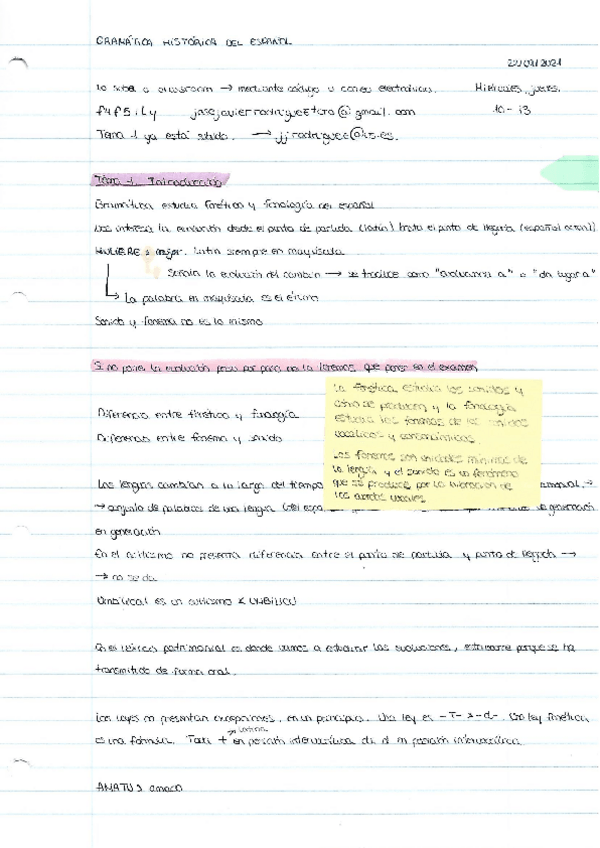 GRAMÁTICA HISTÓRICA DEL ESPAÑOL
Lo sube a classroom → mediante código u correo electrónico. Miércoles, jueves.
josejavierrodrigueztoro@gmail.com 10-13
Tema 1 ya está subido. →
Tema 1. Introducción
Gramática estudia fonética y fonología del español
Nos interesa la evolución desde el punto de partida (latín) hasta el punto de llegada (español actual)
MULIERE > mujer. Latín siempre en mayúscula
Señala la evolución del cambio → se traduce como "evoluciona a" o "da lugar a"
La palabra en mayúscula es el étimo
Sonido y fonema no es lo mismo
Si no pone la evolución paso por paso no la tenemos que poner en el examen
Diferencia entre fonética y fonología
Diferencia entre fonema y sonido
La fonética estudia los sonidos y
cómo se producen y la fonología
estudia los fonemas de los sonidos
vocálicos y consonánticos.
Los fonemas son unidades mínimas de
la lengua y el sonido es un fenómeno
que se produce por la vibración de
las cuerdas vocales
Las lenguas cambian a lo largo del tiempo
→ conjunto de palabras de una lengua de generación
en generación
En el cultismo no presenta diferencia entre el punto de partida y punto de llegada →
→ no se da
Umbilical es un cultismo < UMBILICU
En el léxico patrimonial es donde vamos a estudiar las evoluciones, estudiarme porque se ha
transmitido de forma oral.
Las leyes no presentan excepciones, en un principio. Una ley es -T- > -d-. Una ley fonética
es una fórmula. Toda t en posición intervocálica da d en posición intervocálica
latina
AMATU > amado